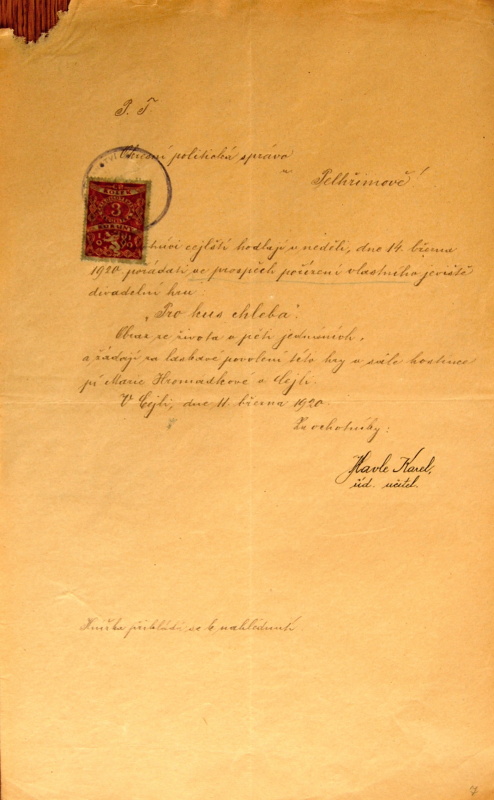 P. T.
Okresní politická správo
v Pelhřimově!
cejlští hodlají v neděli, dne 14. března
1920 pořádati ve prospěch pořízení vlastního jeviště
divadelní hru
„Pro kus chleba".
Obraz ze života o pěti jednáních,
a žádají za laskavé povolení této hry v sále hostince
pí Marie Hromádkové v Cejli.
V Cejli, dne 11. března 1920.
Za ochotníky:
Havle Karel,
úd. učitel.
Knížka přikládá se k nahlédnutí.
KOLEK
3
KORUNY
7